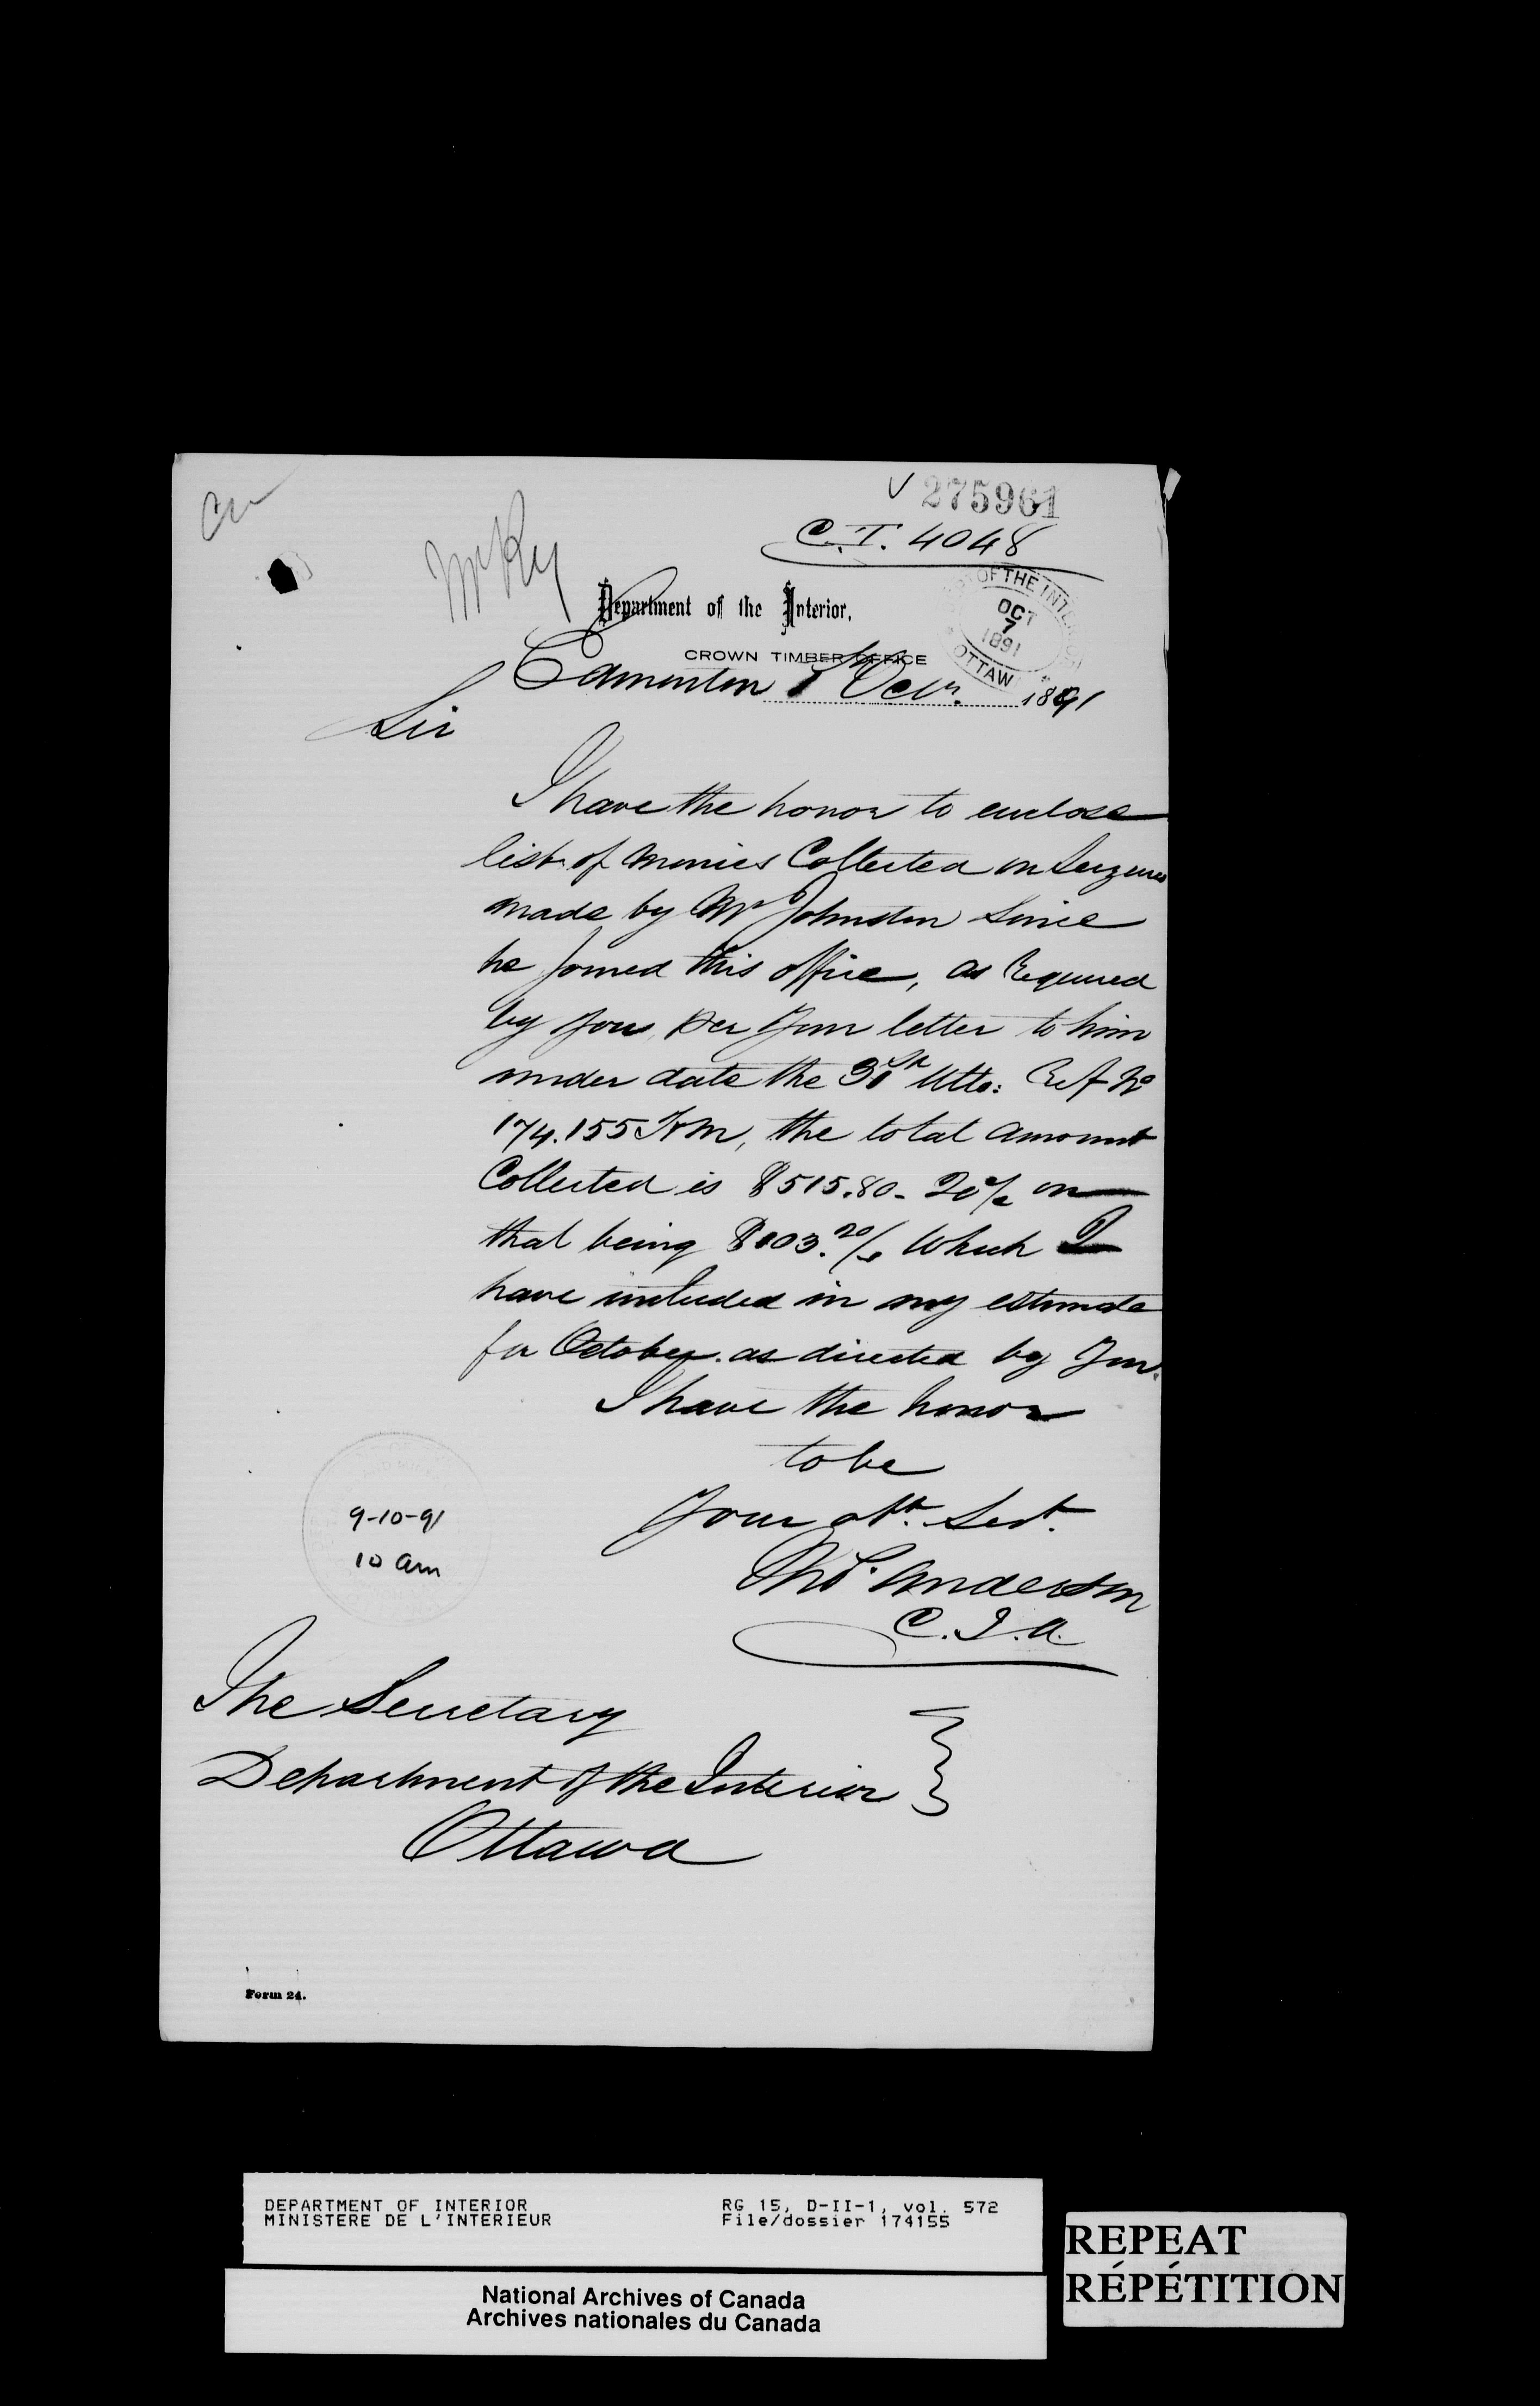 275961
C.T. 4048
Mr Ry
Department of the Interior,
CROWN TIMBER OFFICE
DEPT OF THE INTERIOR
OCT
7
1891
OTTAWA
Edmonton 1st Octr. 1891
Sir
I have the honor to enclose
list of monies Collected on Seizures
made by Mr Johnston Since
he Joined this office, as Required
by you, per your letter to him
under date the 31st Ulto: Ref No
174.155 T&M, the total amount
Collected is $515.80 - 20% on
that being $103.20/. Which I
have included in my estimate
for October. as directed by You.
I have the honor
to be
Your obt. Sevt.
Thos. Anderson
C.T.A.
9-10-91
10 am
The Secretary
Department of the Interior
Ottawa
Form 24.
DEPARTMENT OF INTERIOR
MINISTERE DE L'INTERIEUR
RG 15, D-II-1, vol. 572
File/dossier 174155
National Archives of Canada
Archives nationales du Canada
REPEAT
RÉPÉTITION